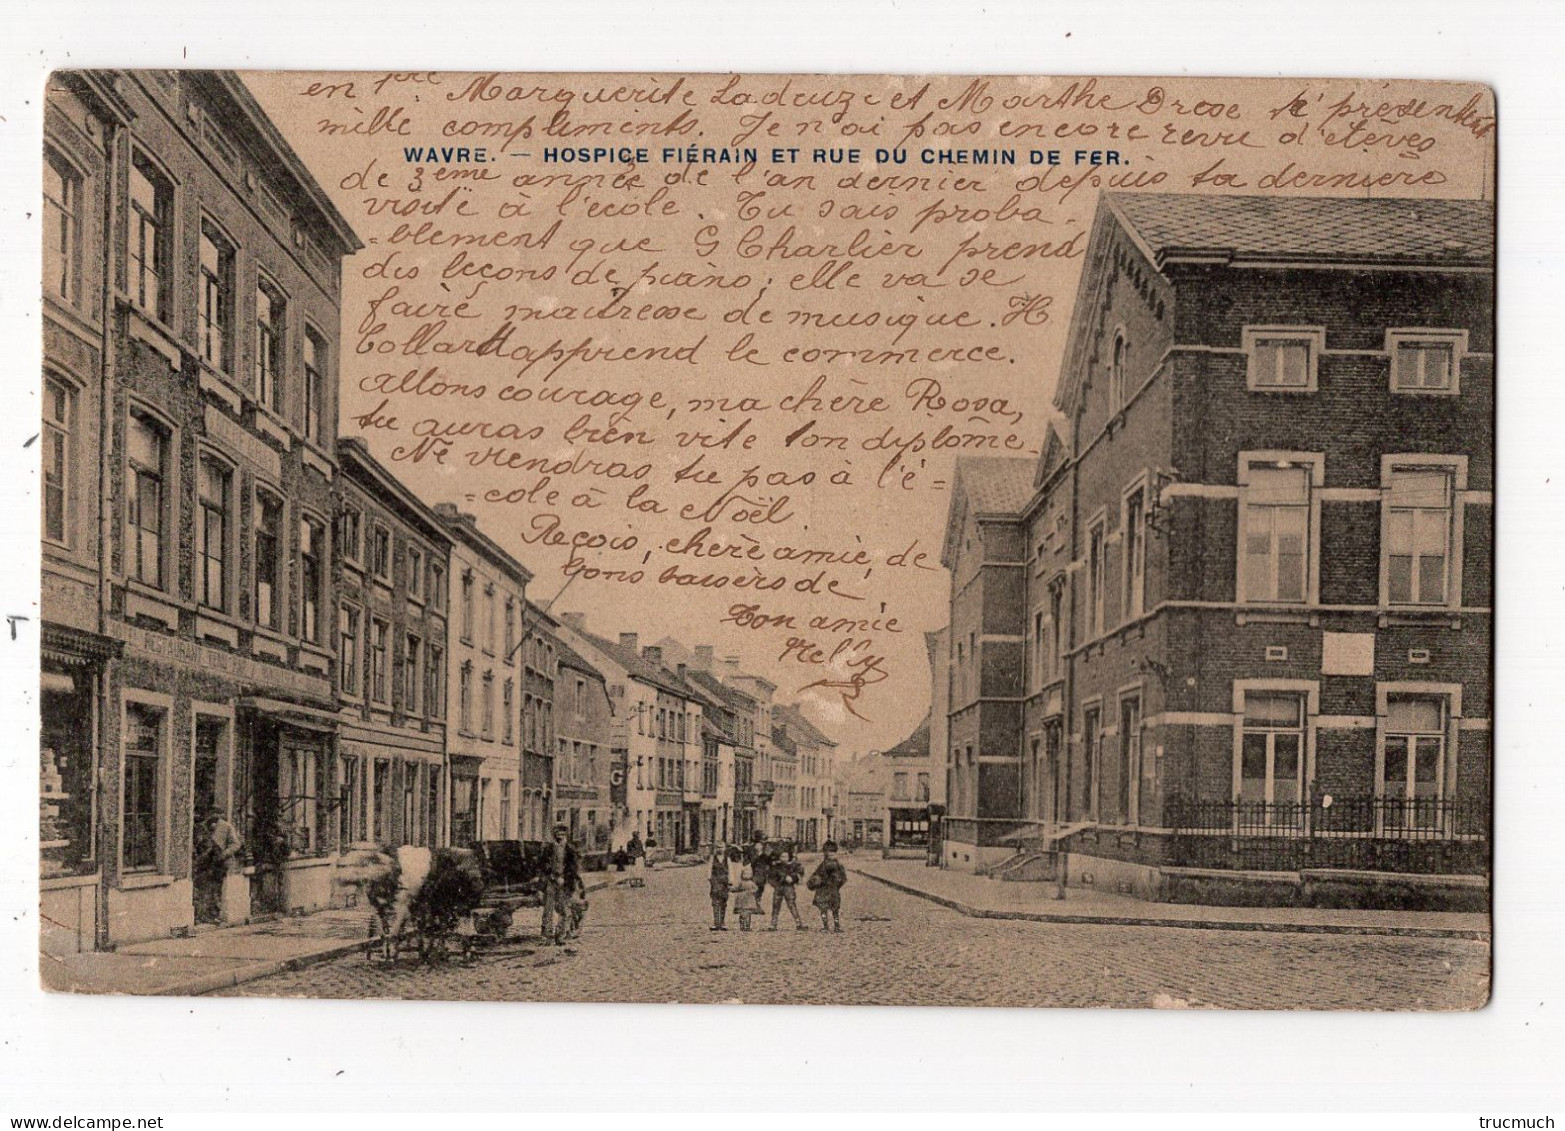 en 1re Marguerite Ladeuze et Marthe Drese te présentent
mille compliments. Je n'ai pas encore revu d'élèves
WAVRE. — HOSPICE FIÉRAIN ET RUE DU CHEMIN DE FER.
de 3ème année de l'an dernier depuis ta dernière
visite à l'école. Tu sais proba-
-blement que G Charlier prend
des leçons de piano; elle va se
faire maitresse de musique. H
Collard apprend le commerce.
Allons courage, ma chère Rosa,
tu auras bien vite ton diplôme
Ne viendras tu pas à l'é-
-cole à la Noël.
Reçois, chère amie, de
bons baisers de
Ton amie
Nelly
RESTAURANT
G
delcampe.net
trucmuch